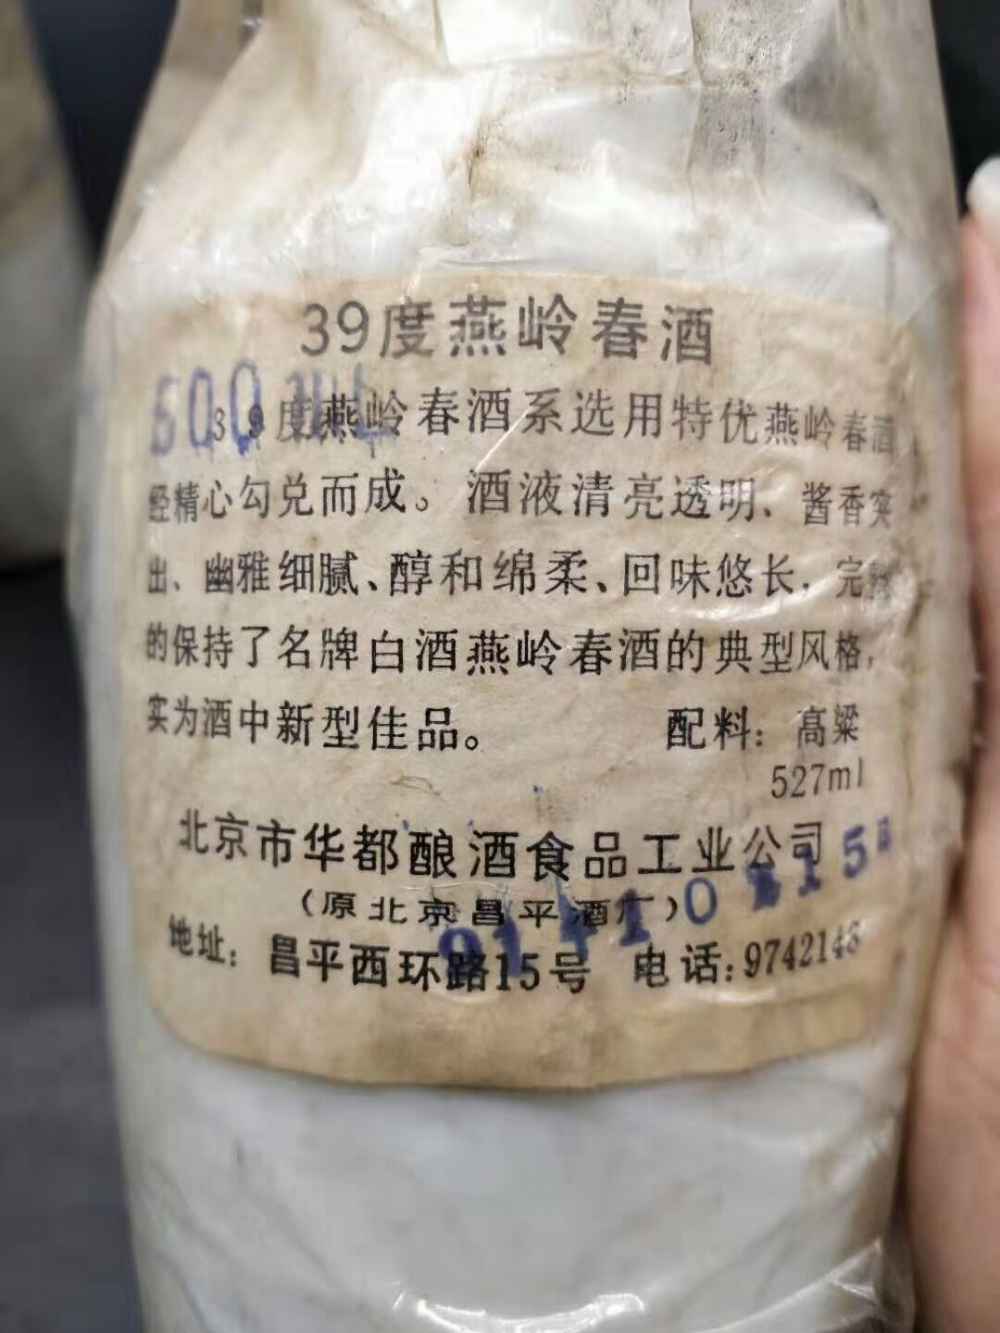 39度燕岭春酒
500ML
39度燕岭春酒系选用特优燕岭春酒
经精心勾兑而成。酒液清亮透明、酱香突
出、幽雅细腻、醇和绵柔、回味悠长,完整
的保持了名牌白酒燕岭春酒的典型风格,
实为酒中新型佳品。 配料：高粱
527ml
北京市华都酿酒食品工业公司
(原北京昌平酒厂)
地址：昌平西环路15号 电话:9742148